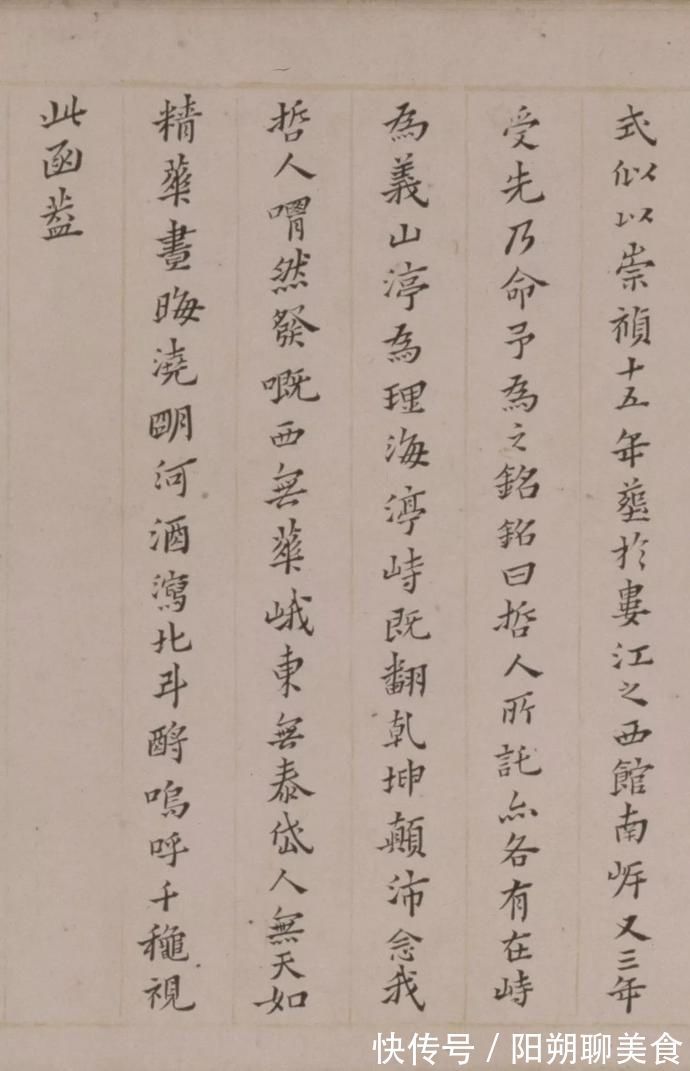 式似以崇禎十五年葬於婁江之西館南岸又三年
受先乃命予為之銘銘曰哲人所託亦各有在峙
為義山渟為理海渟峙既翻乾坤顛沛念我
哲人喟然發嘅西無華峨東無泰岱人無天如
精華晝晦澆明河酒瀉北斗酹嗚呼千龝視
此函蓋
快传号/阳朔聊美食